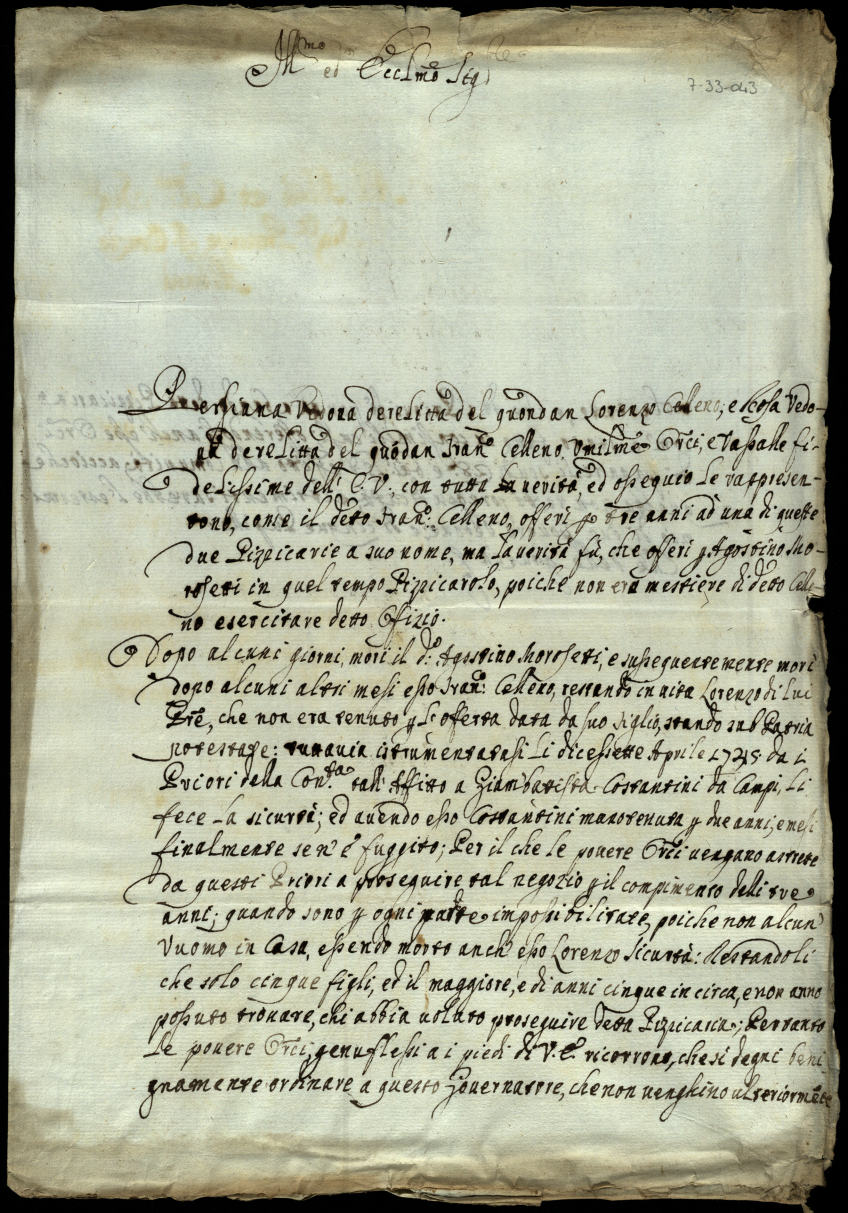 Ill.mo ed Eccl.mo Sig.re
7-33-043
Persianna Vedova derelitta del quondan Lorenzo Celleno; e Rosa Vedo-
va derelitta del quodan Fran.o Celleno, Umilme Orci, e Vassalle fi-
delissime dell' E.V., con tutta la verità, ed ossequio le rappresen-
tono, come il detto Fran.o Celleno, offerì p tre anni ad una di queste
due Pizzicarie a suo nome, ma la verità fù, che offerì p Agostino Mo-
rosetti in quel tempo Pizzicarolo, poiche non era mestiere di detto Celle-
no esercitare detto Offizio.
Dopo alcuni giorni, morì il d.o Agostino Morosetti, e susseguentemente morì
dopo alcuni altri mesi esso Fran.o Celleno, restando in vita Lorenzo di lui
Pre, che non era tenuto p l'offerta data da suo figlio, stando sub Patria
potestate: tuttavia istrumentatasi li dicessette Aprile 1745 da i
Priori della Con.tà tall' Affitto a Giambatista Costantini da Campi, li
fece la sicurtà; ed avendo esso Costantini manotenuta p due anni, e mesi
finalmente sen' è fuggito; Per il che le povere Orci vengano astrette
da questi Priori a proseguire tal negozio p il compimento delli tre
anni; quando sono p ogni parte impossibilitate, poiche non alcun'
Vuomo in Casa, essendo morto anch' esso Lorenzo Sicurtà: Restandoli
che solo cinque figli, ed il maggiore, e di anni cinque in circa, e non anno
possuto trovare, chi abbia voluto proseguire detta Pizzicaria; Pertanto
le povere Orci, genuflessi a i piedi di V.E. ricorrono, che si degni beni-
gnamente ordinare a questo Governatore, che non venghino ulteriorméte